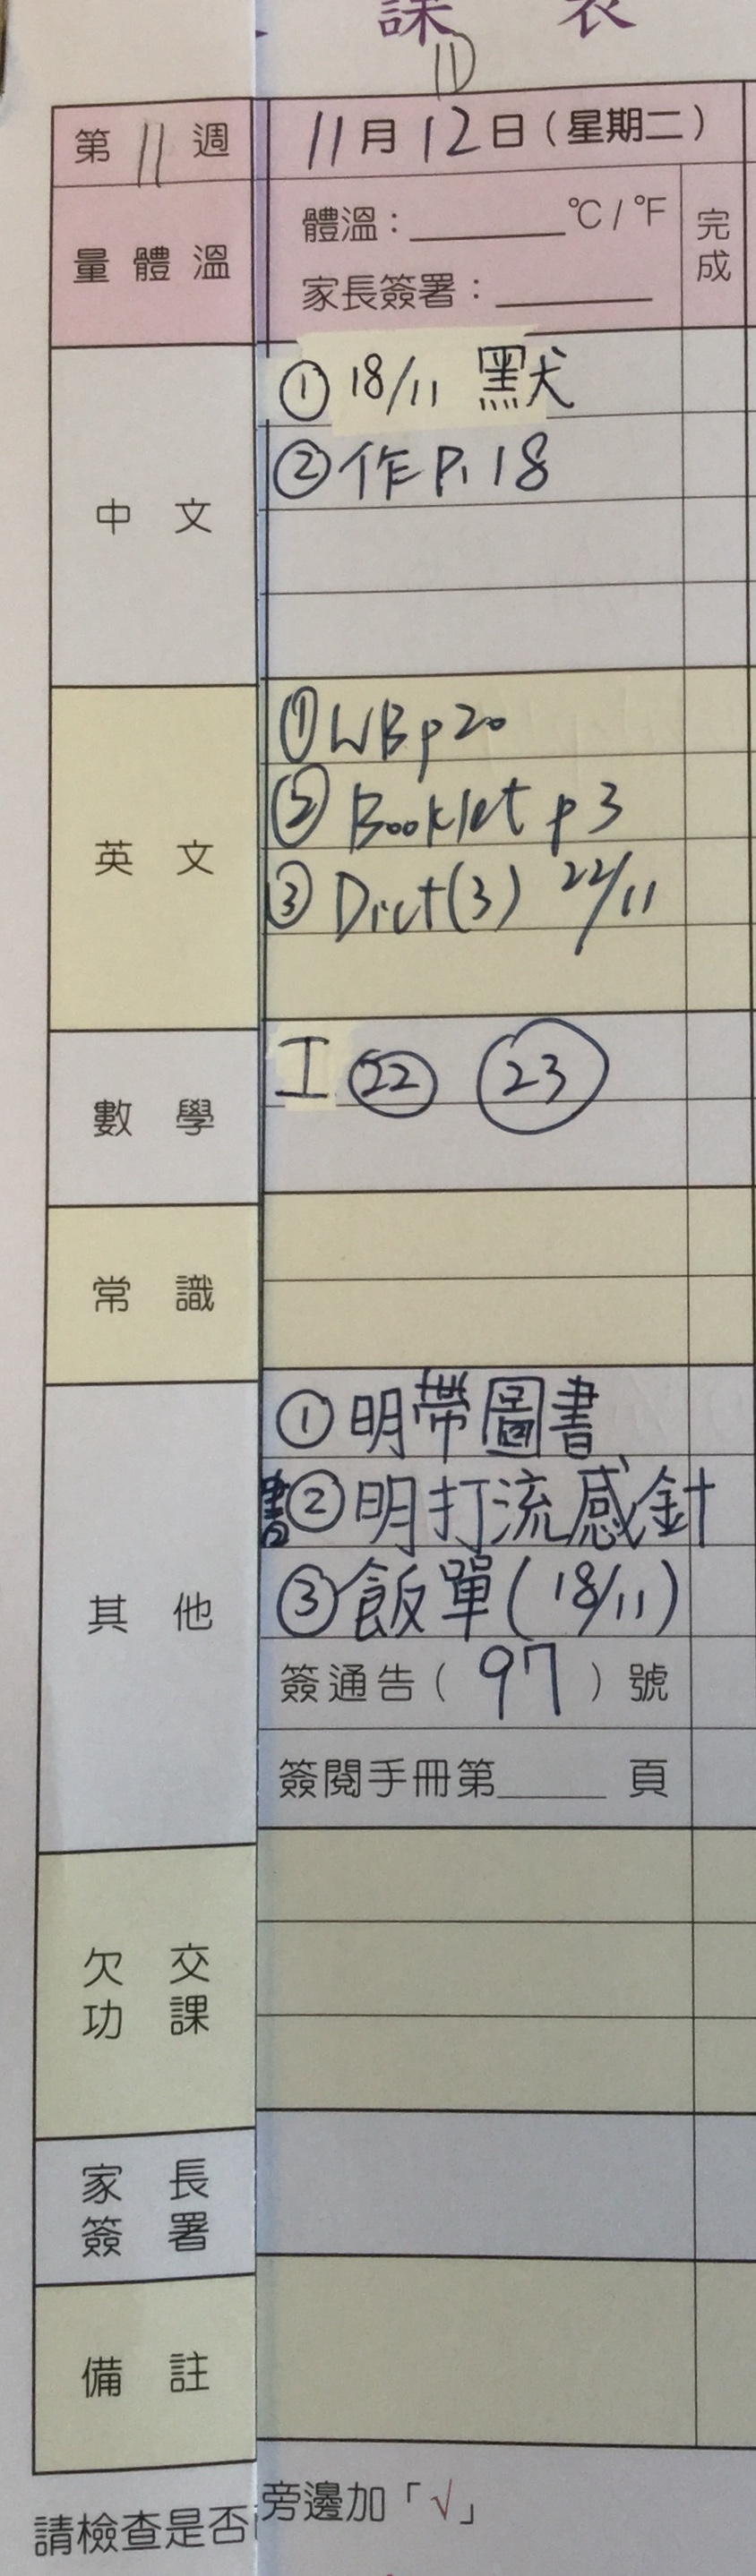 課 表
11
第 11 週
11月12日(星期二)
量體溫
體溫:______°C/°F
完成
家長簽署:______
中文
① 18/11 默
② 作 P.18
英文
① WB p20
② Booklet p3
③ Dict(3) 22/11
數學
工 ㉒ ㉓
常識
其他
① 明帶圖書
書② 明打流感針
③ 飯單(18/11)
簽通告( 97 )號
簽閱手冊第____頁
欠交功課
家長簽署
備註
請檢查是否
旁邊加「√」